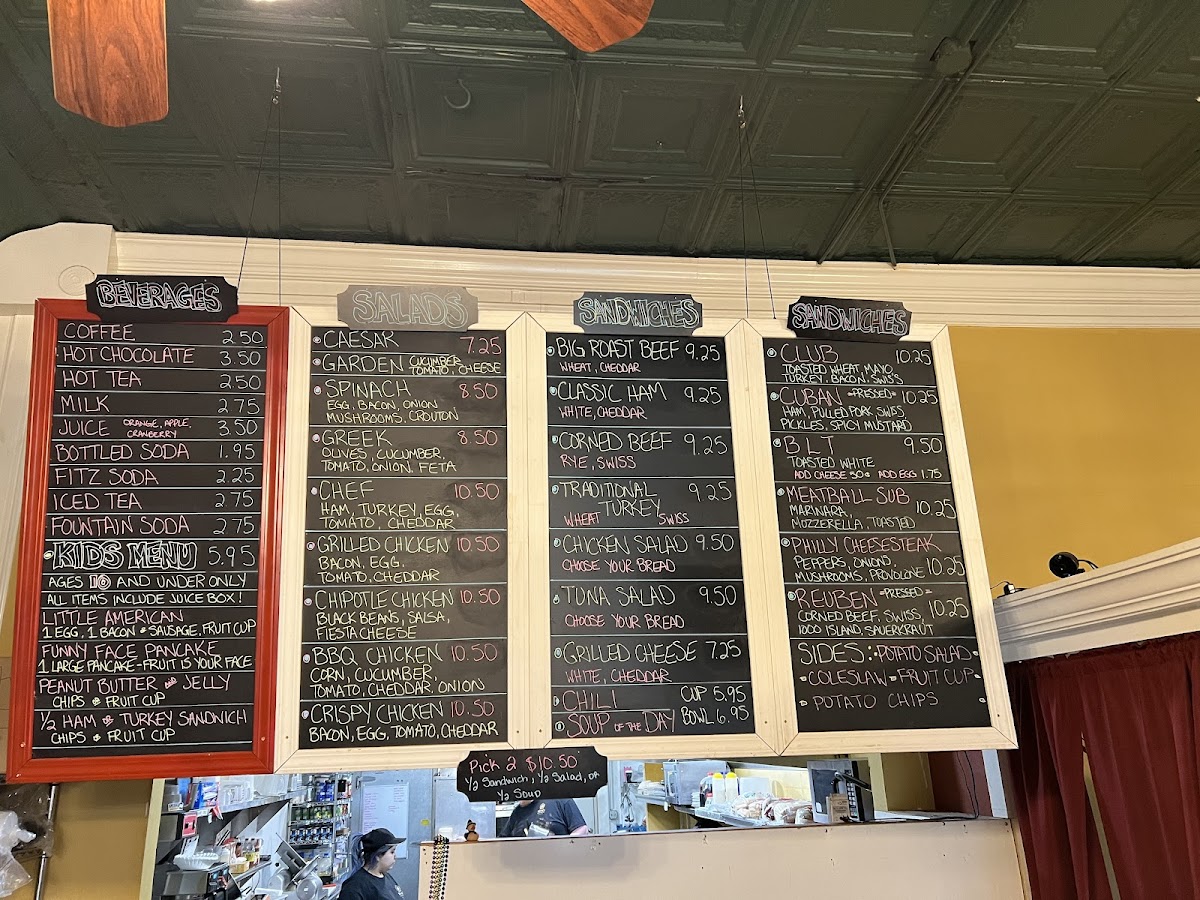 BEVERAGES
COFFEE 2.50
HOT CHOCOLATE 3.50
HOT TEA 2.50
MILK 2.75
JUICE ORANGE, APPLE, 3.50
CRANBERRY
BOTTLED SODA 1.95
FITZ SODA 2.25
ICED TEA 2.75
FOUNTAIN SODA 2.75
KIDS MENU 5.95
AGES 10 AND UNDER ONLY
ALL ITEMS INCLUDE JUICE BOX!
LITTLE AMERICAN
1 EGG, 1 BACON OR SAUSAGE, FRUIT CUP
FUNNY FACE PANCAKE
1 LARGE PANCAKE - FRUIT IS YOUR FACE
PEANUT BUTTER AND JELLY
CHIPS OR FRUIT CUP
1/2 HAM OR TURKEY SANDWICH
CHIPS OR FRUIT CUP
SALADS
CAESAR 7.25
GARDEN CUCUMBER
TOMATO, CHEESE
SPINACH 8.50
EGG, BACON, ONION
MUSHROOMS, CROUTON
GREEK 8.50
OLIVES, CUCUMBER,
TOMATO, ONION, FETA
CHEF 10.50
HAM, TURKEY, EGG,
TOMATO, CHEDDAR
GRILLED CHICKEN 10.50
BACON, EGG,
TOMATO, CHEDDAR
CHIPOTLE CHICKEN 10.50
BLACK BEANS, SALSA,
FIESTA CHEESE
BBQ CHICKEN 10.50
CORN, CUCUMBER,
TOMATO, CHEDDAR, ONION
CRISPY CHICKEN 10.50
BACON, EGG, TOMATO, CHEDDAR
SANDWICHES
BIG ROAST BEEF 9.25
WHEAT, CHEDDAR
CLASSIC HAM 9.25
WHITE, CHEDDAR
CORNED BEEF 9.25
RYE, SWISS
TRADITIONAL 9.25
TURKEY
WHEAT SWISS
CHICKEN SALAD 9.50
CHOOSE YOUR BREAD
TUNA SALAD 9.50
CHOOSE YOUR BREAD
GRILLED CHEESE 7.25
WHITE, CHEDDAR
CHILI CUP 5.95
SOUP OF THE DAY BOWL 6.95
SANDWICHES
CLUB 10.25
TOASTED WHEAT, MAYO,
TURKEY, BACON, SWISS
CUBAN =PRESSED= 10.25
HAM, PULLED PORK, SWISS,
PICKLES, SPICY MUSTARD
BLT 9.50
TOASTED WHITE
ADD CHEESE 50¢ ADD EGG 1.75
MEATBALL SUB
MARINARA, 10.25
MOZZERELLA, TOASTED
PHILLY CHEESESTEAK
PEPPERS, ONIONS,
MUSHROOMS, PROVOLONE 10.25
REUBEN =PRESSED=
CORNED BEEF, SWISS, 10.25
1000 ISLAND, SAUERKRAUT
SIDES: POTATO SALAD
COLESLAW FRUIT CUP
POTATO CHIPS
Pick 2 $10.50
1/2 Sandwich, 1/2 Salad, OR
1/2 Soup